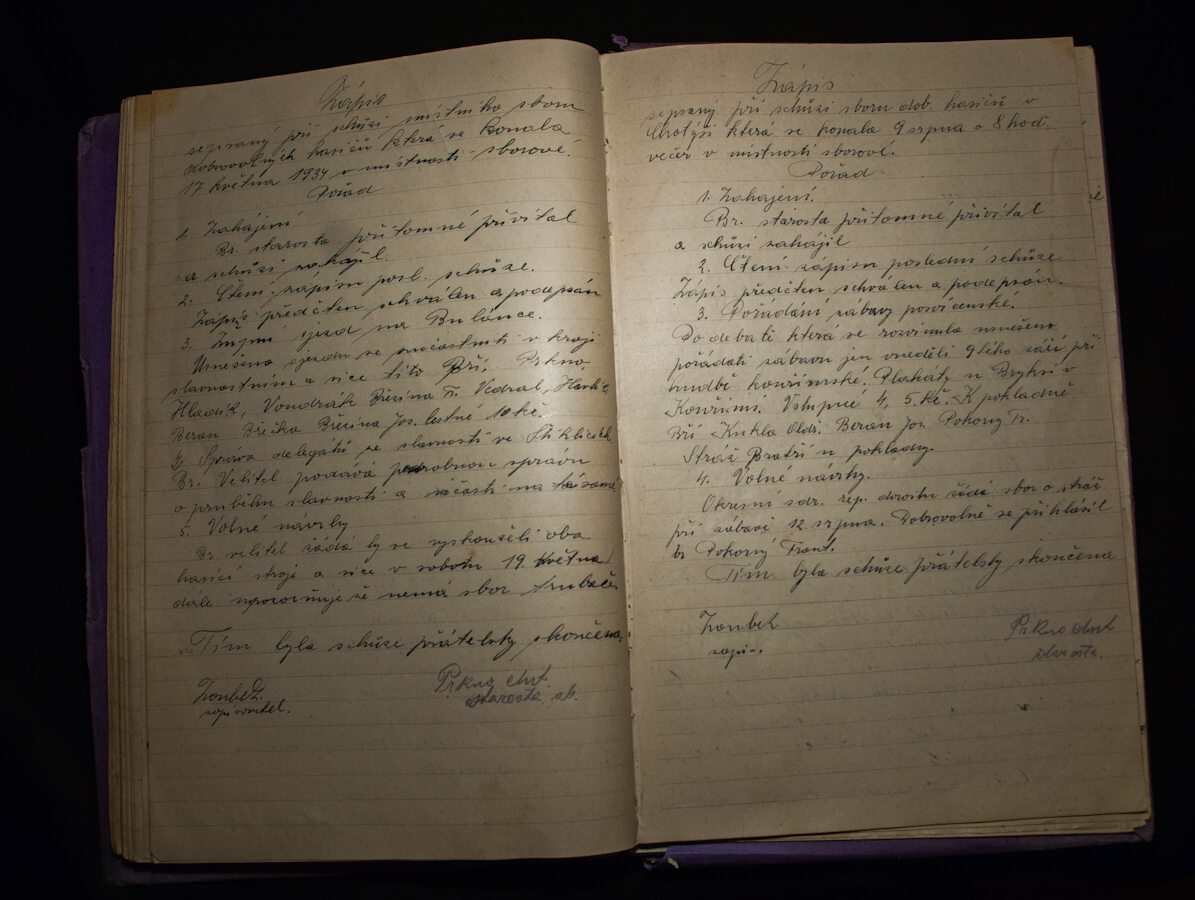 Zápis
sepsaný při schůzi místního sboru
dobrovolných hasičů která se konala
17 května 1934 v místnosti sborové.
Pořad
1. Zahájení
Br. starosta přítomné přivítal
a schůzi zahájil.
2. Čtení zápisu posl. schůze.
Zápis předčten schválen a podepsán
3. Župní sjezd na Bulánce.
Usnešeno sjezdu se súčastniti v kroji
slavnostním a sice tito Bří, Prkno,
Hladík, Vondrák Březina Fr. Vedral,
Beran Břečka Březina Jos. cestné 10 kč.
4) Sprava delegátů ze slavnosti ve
Br. Velitel podává podrobnou správu
o průběhu slavnosti a účasti na
5. Volné návrhy
Br velitel žádá by se vyskoušeli oba
hasící stroje a sice v sobotu 19. května
dále upozorňuje že nemá sbor
Tím byla schůze přátelsky skončena.
Zoubek
zapisovatel.
Prkno Ant.
starosta sb.
Zápis
sepsaný při schůzi sboru dob. hasičů v
Chotýši která se konala 9 srpna o 8 hod.
večer v místnosti sborové.
Pořad
1. Zahájení.
Br. starosta přítomné přivítal
a schůzi zahájil
2. Čtení zápisu poslední schůze.
Zápis předčten schválen a podepsán
3. Pořádání zábavy posvícenské.
Po debatě která se rozvinula usnešeno
pořádati zábavu jen v neděli 9tého září při
hudbě kouřimské. Plakáty u Bryksí v
Kouřimi. Vstupné 4, 5. kč. K pokladně
Bří Kukla Oldř. Beran Jos. Pokorný Fr.
Stráž Bratři u pokladny.
4. Volné návrhy.
Okresní sdr. rep. dorostu žádá sbor o stráž
při zábavě 12. srpna. Dobrovolně se přihlásil
br Pokorný Frant.
Tím byla schůze přátelsky skončena
Zoubek
zapi-.
Prkno Ant
starosta.